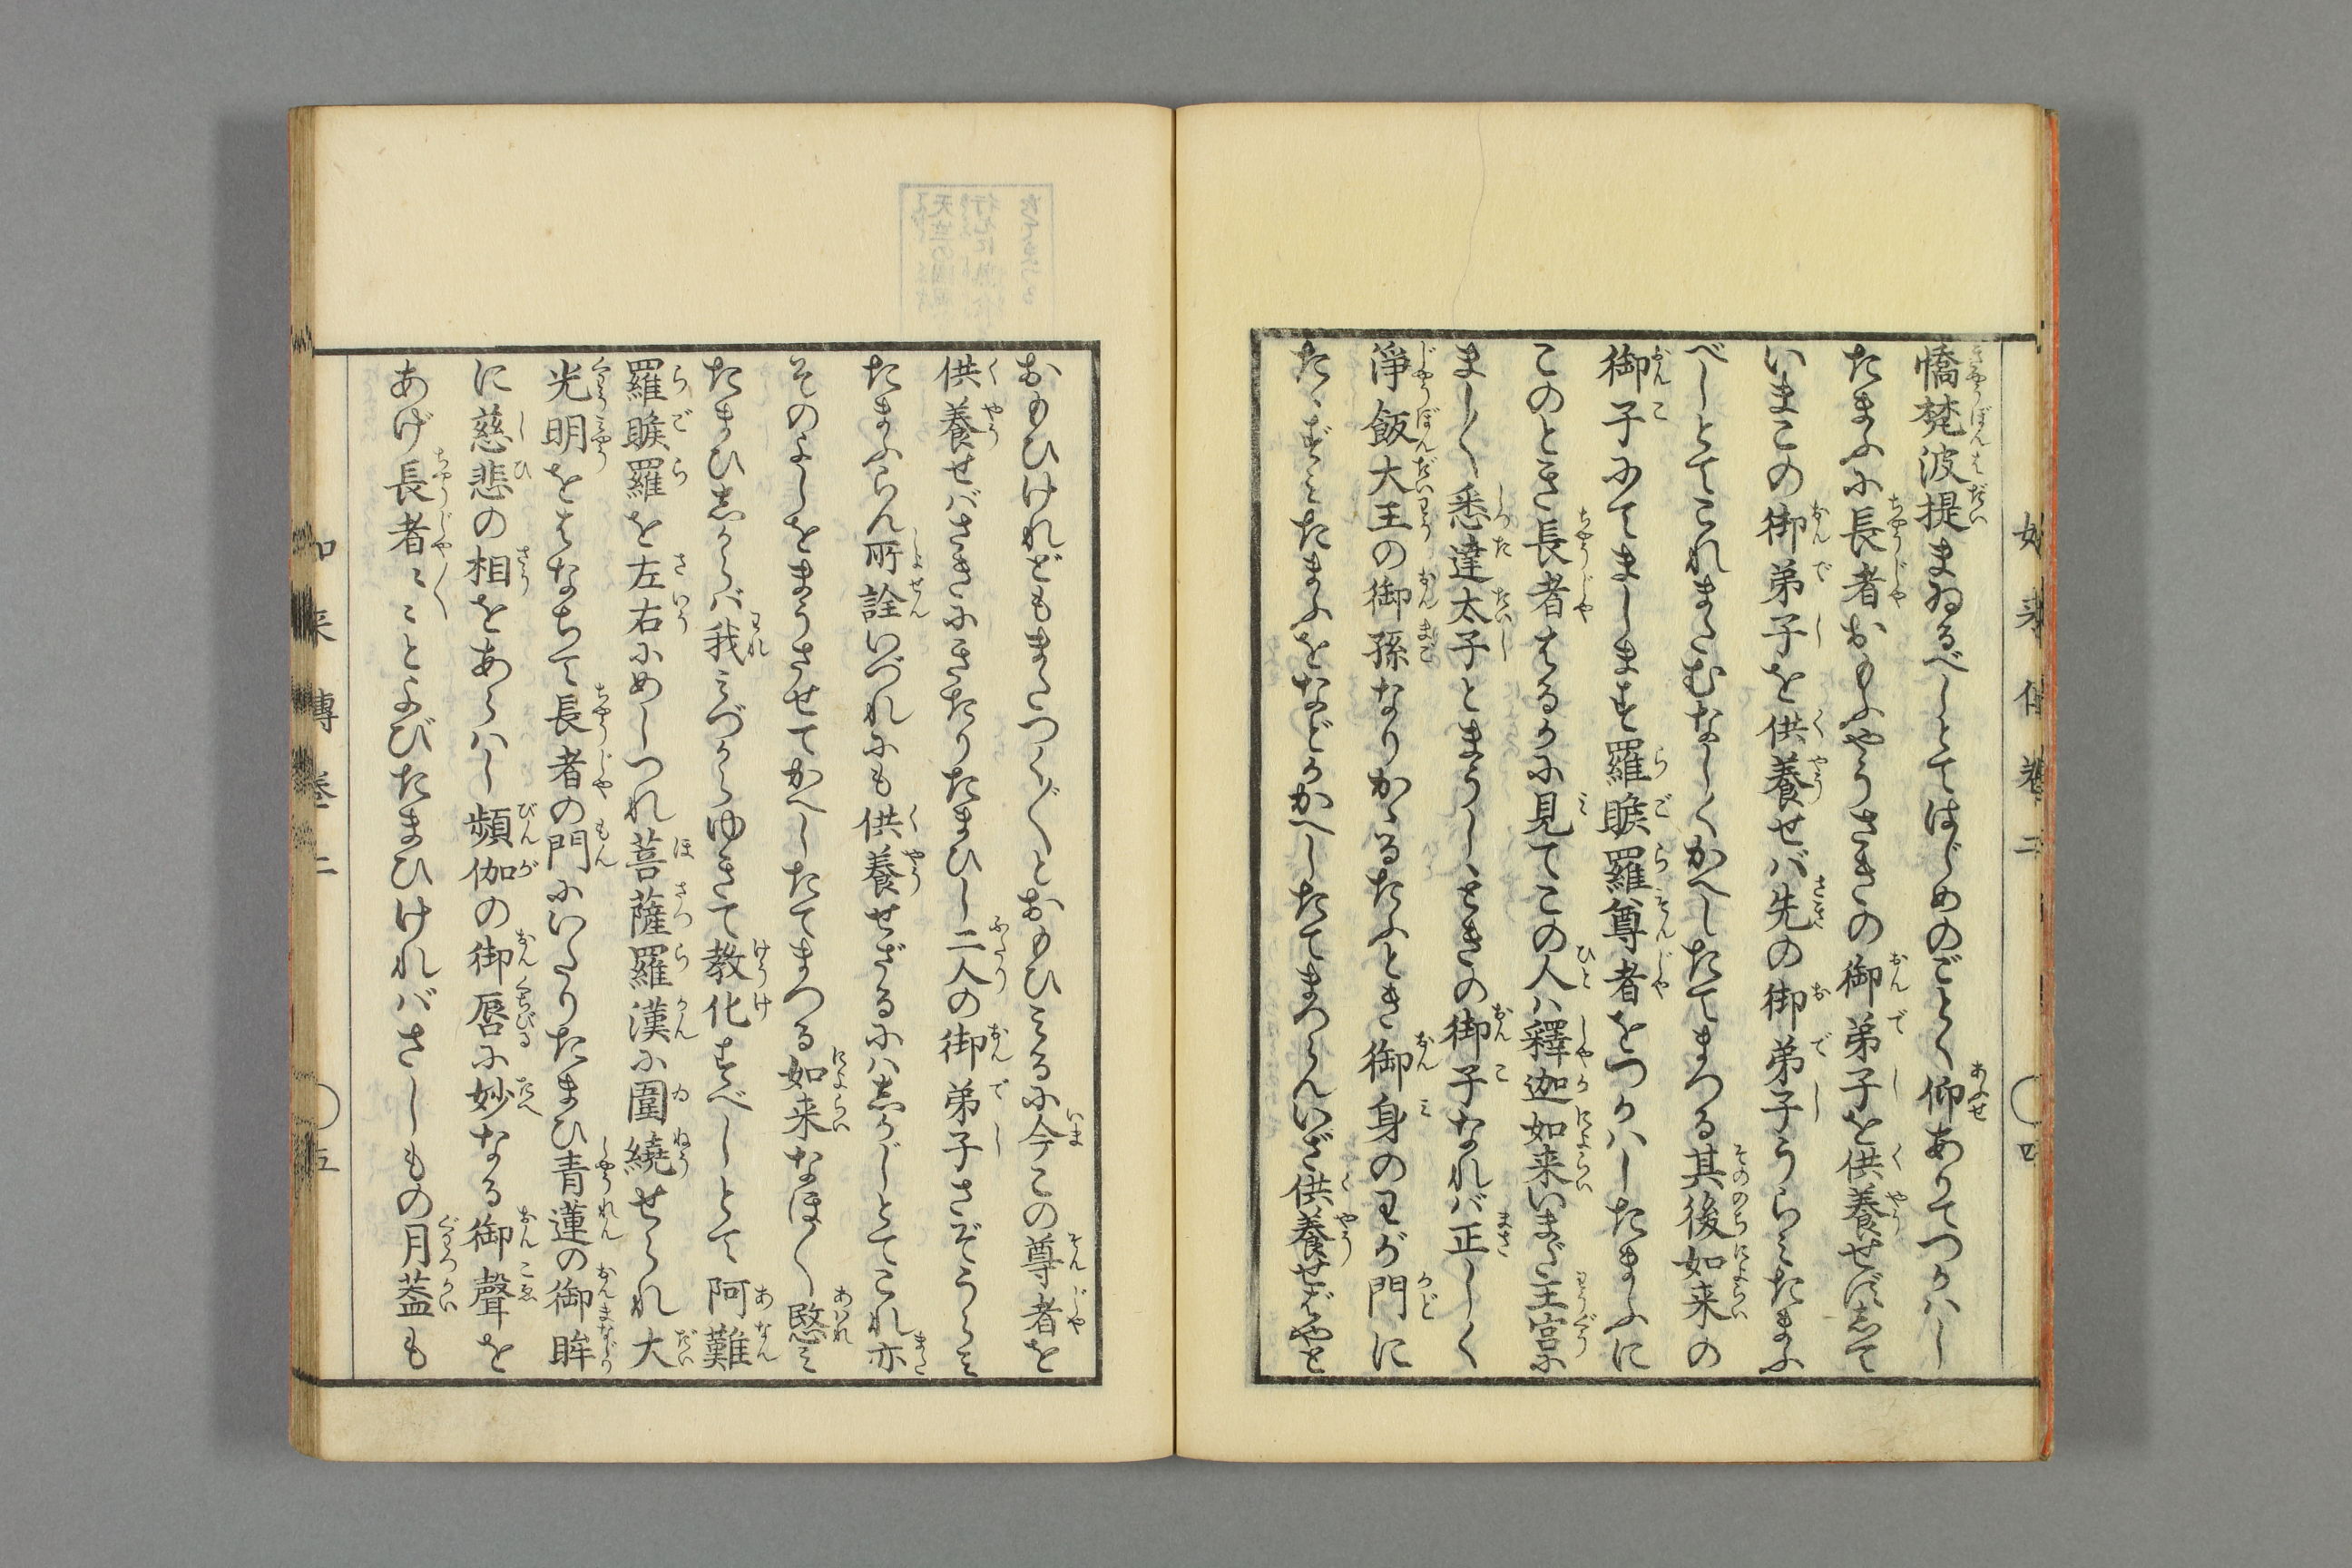 憍梵波提まゐるべしとてはじめのごとく仰ありてつかハし
たまふに長者おもふやうさきの御弟子を供養せばにて
いまこの御弟子を供養せバ先の御弟子うらみたまふ
べしとてこれまたむなしくかへしたてまつる其後如来の
御子にてまします羅睺羅尊者をつかハしたまふに
このとき長者はるかに見てこの人ハ釋迦如来いまだ王宮に
まし〳〵悉達太子とまうしゝときの御子なれバ正しく
淨飯大王の御孫なりかゝるたふとき御身のわが門に
たゝずみたまふをなどかかへしたてまつらんいざ供養せばやと
おもひけれどもまたつく〴〵とおもひみるに今この尊者を
供養せバさきにきたりたまひし二人の御弟子さぞうらみ
たまふらん所詮いづれにも供養せざるにハしかじとてこれ亦
そのよしをまうさせてかへしたてまつる如来なほ〳〵愍み
たまひしからバ我みづからゆきて教化すべしとて阿難
羅睺羅を左右にめしつれ菩薩羅漢に圍繞せられ大
光明をはなちて長者の門にいたりたまひ青蓮の御眸
に慈悲の相をあらハし頻伽の御唇に妙なる御聲を
あげ長者〳〵とよびたまひけれバさしもの月蓋も
如来傳巻二
四
如来傳巻二
五